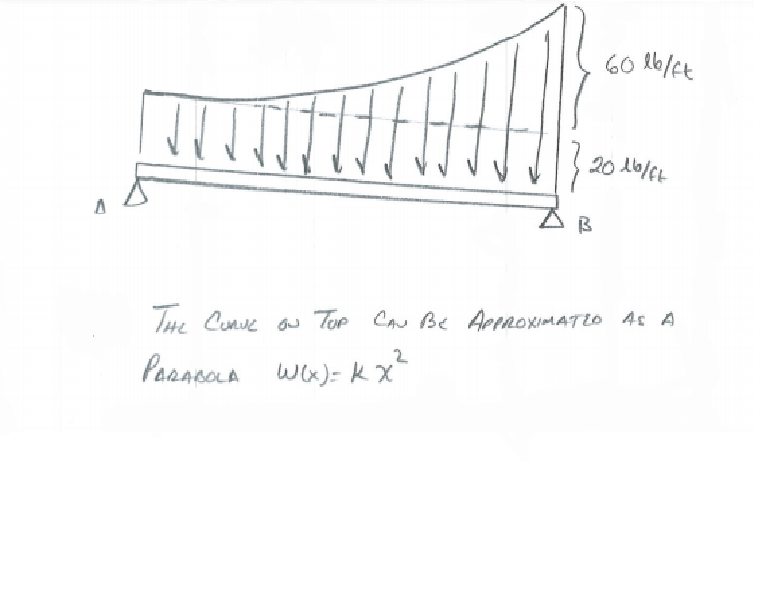 60 lb/ft
20 lb/ft
A
B
THE CURVE ON TOP CAN BE APPROXIMATED AS A
PARABOLA W(x)= K x²